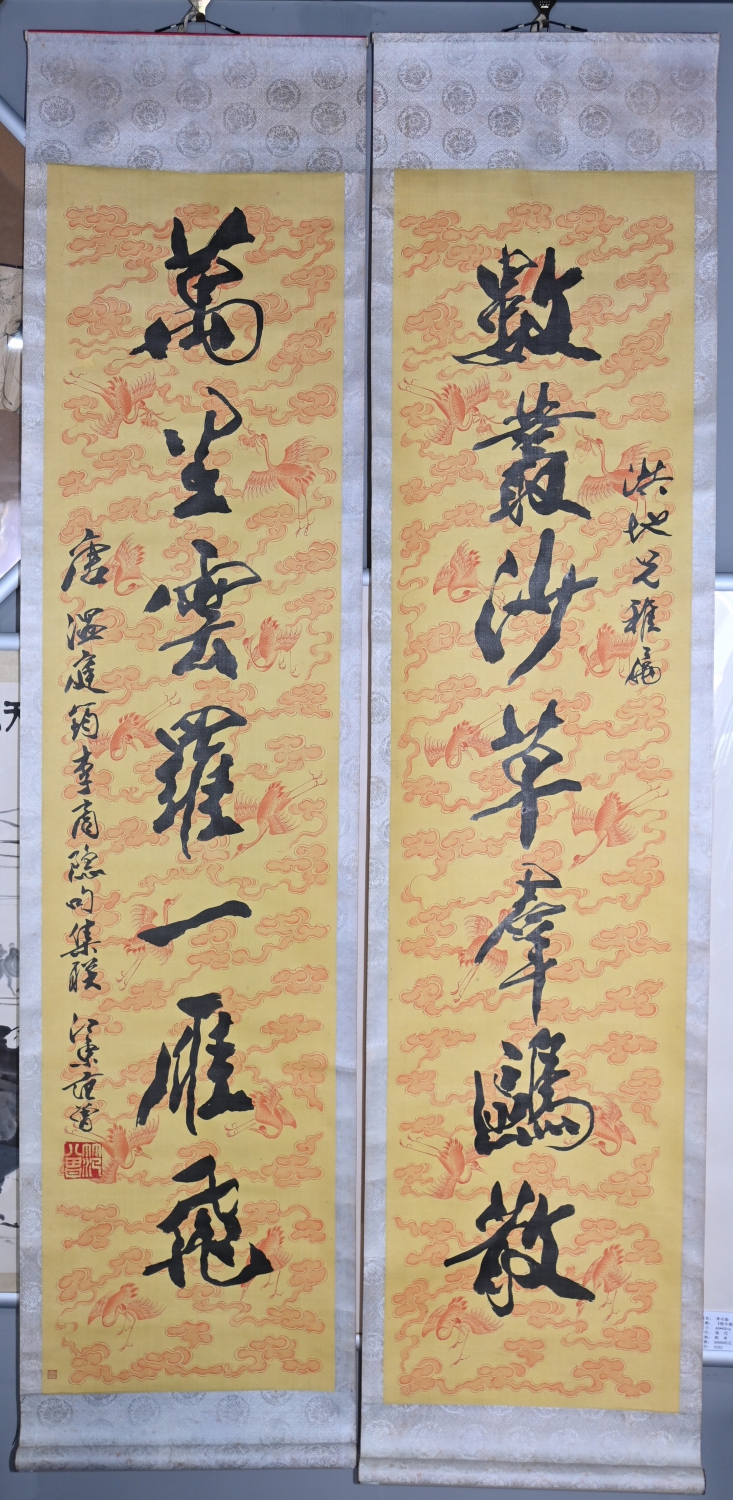 數叢沙草羣鷗散
洪地兄雅屬
萬里雲羅一雁飛
唐溫庭筠李商隱句集联 江東范曾